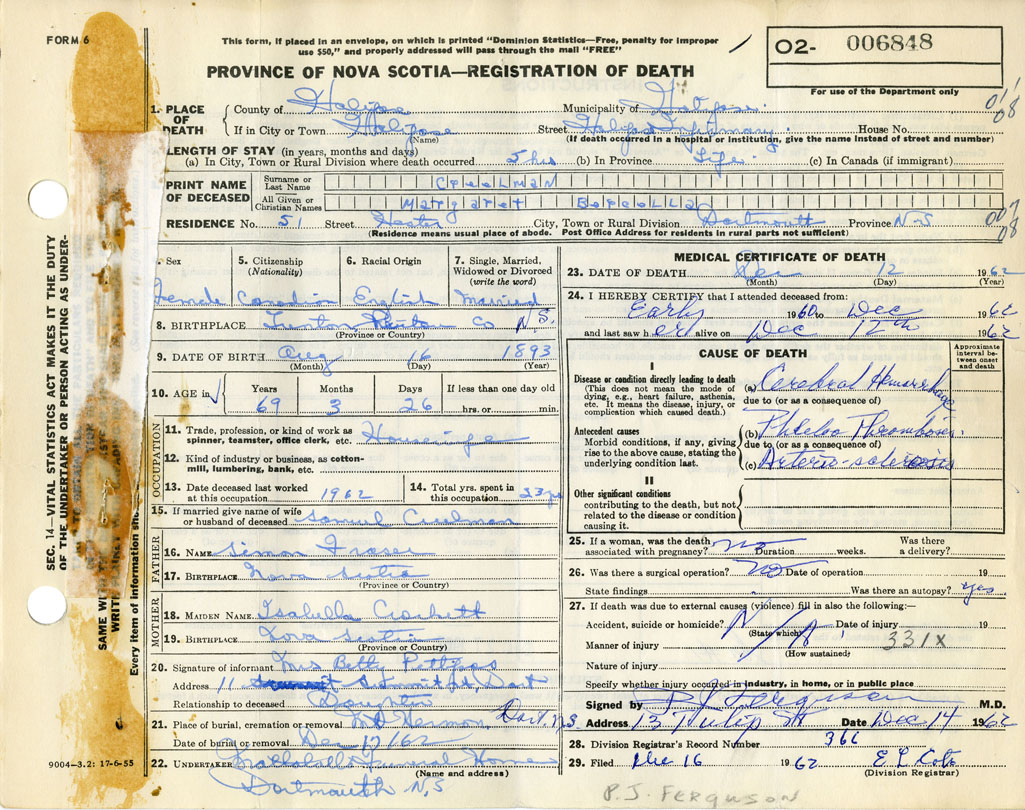 FORM 6
This form, if placed in an envelope, on which is printed "Dominion Statistics—Free, penalty for improper
use $50," and properly addressed will pass through the mail "FREE"
O2- 006848
For use of the Department only
PROVINCE OF NOVA SCOTIA—REGISTRATION OF DEATH
01/08
1. PLACE OF DEATH
County of Halifax Municipality of Halifax
If in City or Town Halifax Street Halifax Infirmary House No.
(Name) (If death occurred in a hospital or institution, give the name instead of street and number)
LENGTH OF STAY (in years, months and days)
(a) In City, Town or Rural Division where death occurred 5 hrs (b) In Province Life (c) In Canada (if immigrant)
PRINT NAME OF DECEASED
Surname or Last Name Creelman
All Given or Christian Names Margaret
007/08
RESIDENCE No. 51 Street Hester City, Town or Rural Division Dartmouth Province N-S
(Residence means usual place of abode. Post Office Address for residents in rural parts not sufficient)
SEC. 14—VITAL STATISTICS ACT MAKES IT THE DUTY
OF THE UNDERTAKER OR PERSON ACTING AS UNDER-
SAME WI
WRIT
Every item of information sho
Sex Female
5. Citizenship (Nationality) Canadian
6. Racial Origin English
7. Single, Married, Widowed or Divorced (write the word) Married
8. BIRTHPLACE Co N.S.
(Province or Country)
9. DATE OF BIRTH Aug 16 1893
(Month) (Day) (Year)
10. AGE in Years 69 Months 3 Days 26 If less than one day old hrs. or min.
OCCUPATION
11. Trade, profession, or kind of work as spinner, teamster, office clerk, etc. Housewife
12. Kind of industry or business, as cotton-mill, lumbering, bank, etc.
13. Date deceased last worked at this occupation 1962
14. Total yrs. spent in this occupation 23 yrs
15. If married give name of wife or husband of deceased Samuel Creelman
FATHER
16. NAME Simon Fraser
17. BIRTHPLACE Nova Scotia
(Province or Country)
MOTHER
18. MAIDEN NAME Isabella Crockett
19. BIRTHPLACE Nova Scotia
(Province or Country)
20. Signature of informant Mrs Betty Pettipas
Address 11 Summit St, Dart
Relationship to deceased Daughter
21. Place of burial, cremation or removal Mt Hermon Dart. N.S.
Date of burial or removal Dec 17/62
22. UNDERTAKER Mattatall Funeral Home
(Name and address)
Dartmouth N.S
9004-3.2: 17-6-55
MEDICAL CERTIFICATE OF DEATH
23. DATE OF DEATH Dec 12 1962
(Month) (Day) (Year)
24. I HEREBY CERTIFY that I attended deceased from:
Early 1960 to Dec 1962
and last saw her alive on Dec 12th 1962
CAUSE OF DEATH
Approximate interval between onset and death
I
Disease or condition directly leading to death
(This does not mean the mode of dying, e.g., heart failure, asthenia, etc. It means the disease, injury, or complication which caused death.)
(a) Cerebral Hemorrhage
due to (or as a consequence of)
Antecedent causes
Morbid conditions, if any, giving rise to the above cause, stating the underlying condition last.
(b) Phlebo Thrombosis
due to (or as a consequence of)
(c) Arterio-sclerosis
II
Other significant conditions
contributing to the death, but not related to the disease or condition causing it.
25. If a woman, was the death associated with pregnancy? no Duration weeks. Was there a delivery?
26. Was there a surgical operation? No Date of operation 19
State findings Was there an autopsy? Yes
27. If death was due to external causes (violence) fill in also the following:—
Accident, suicide or homicide? N/A Date of injury 19
(State which)
Manner of injury 331X
(How sustained)
Nature of injury
Specify whether injury occurred in industry, in home, or in public place
Signed by P J Ferguson M.D.
Address 137 Tulip St Date Dec 14 1962
28. Division Registrar's Record Number 366
29. Filed Dec 16 1962
(Division Registrar)
P.J. FERGUSON